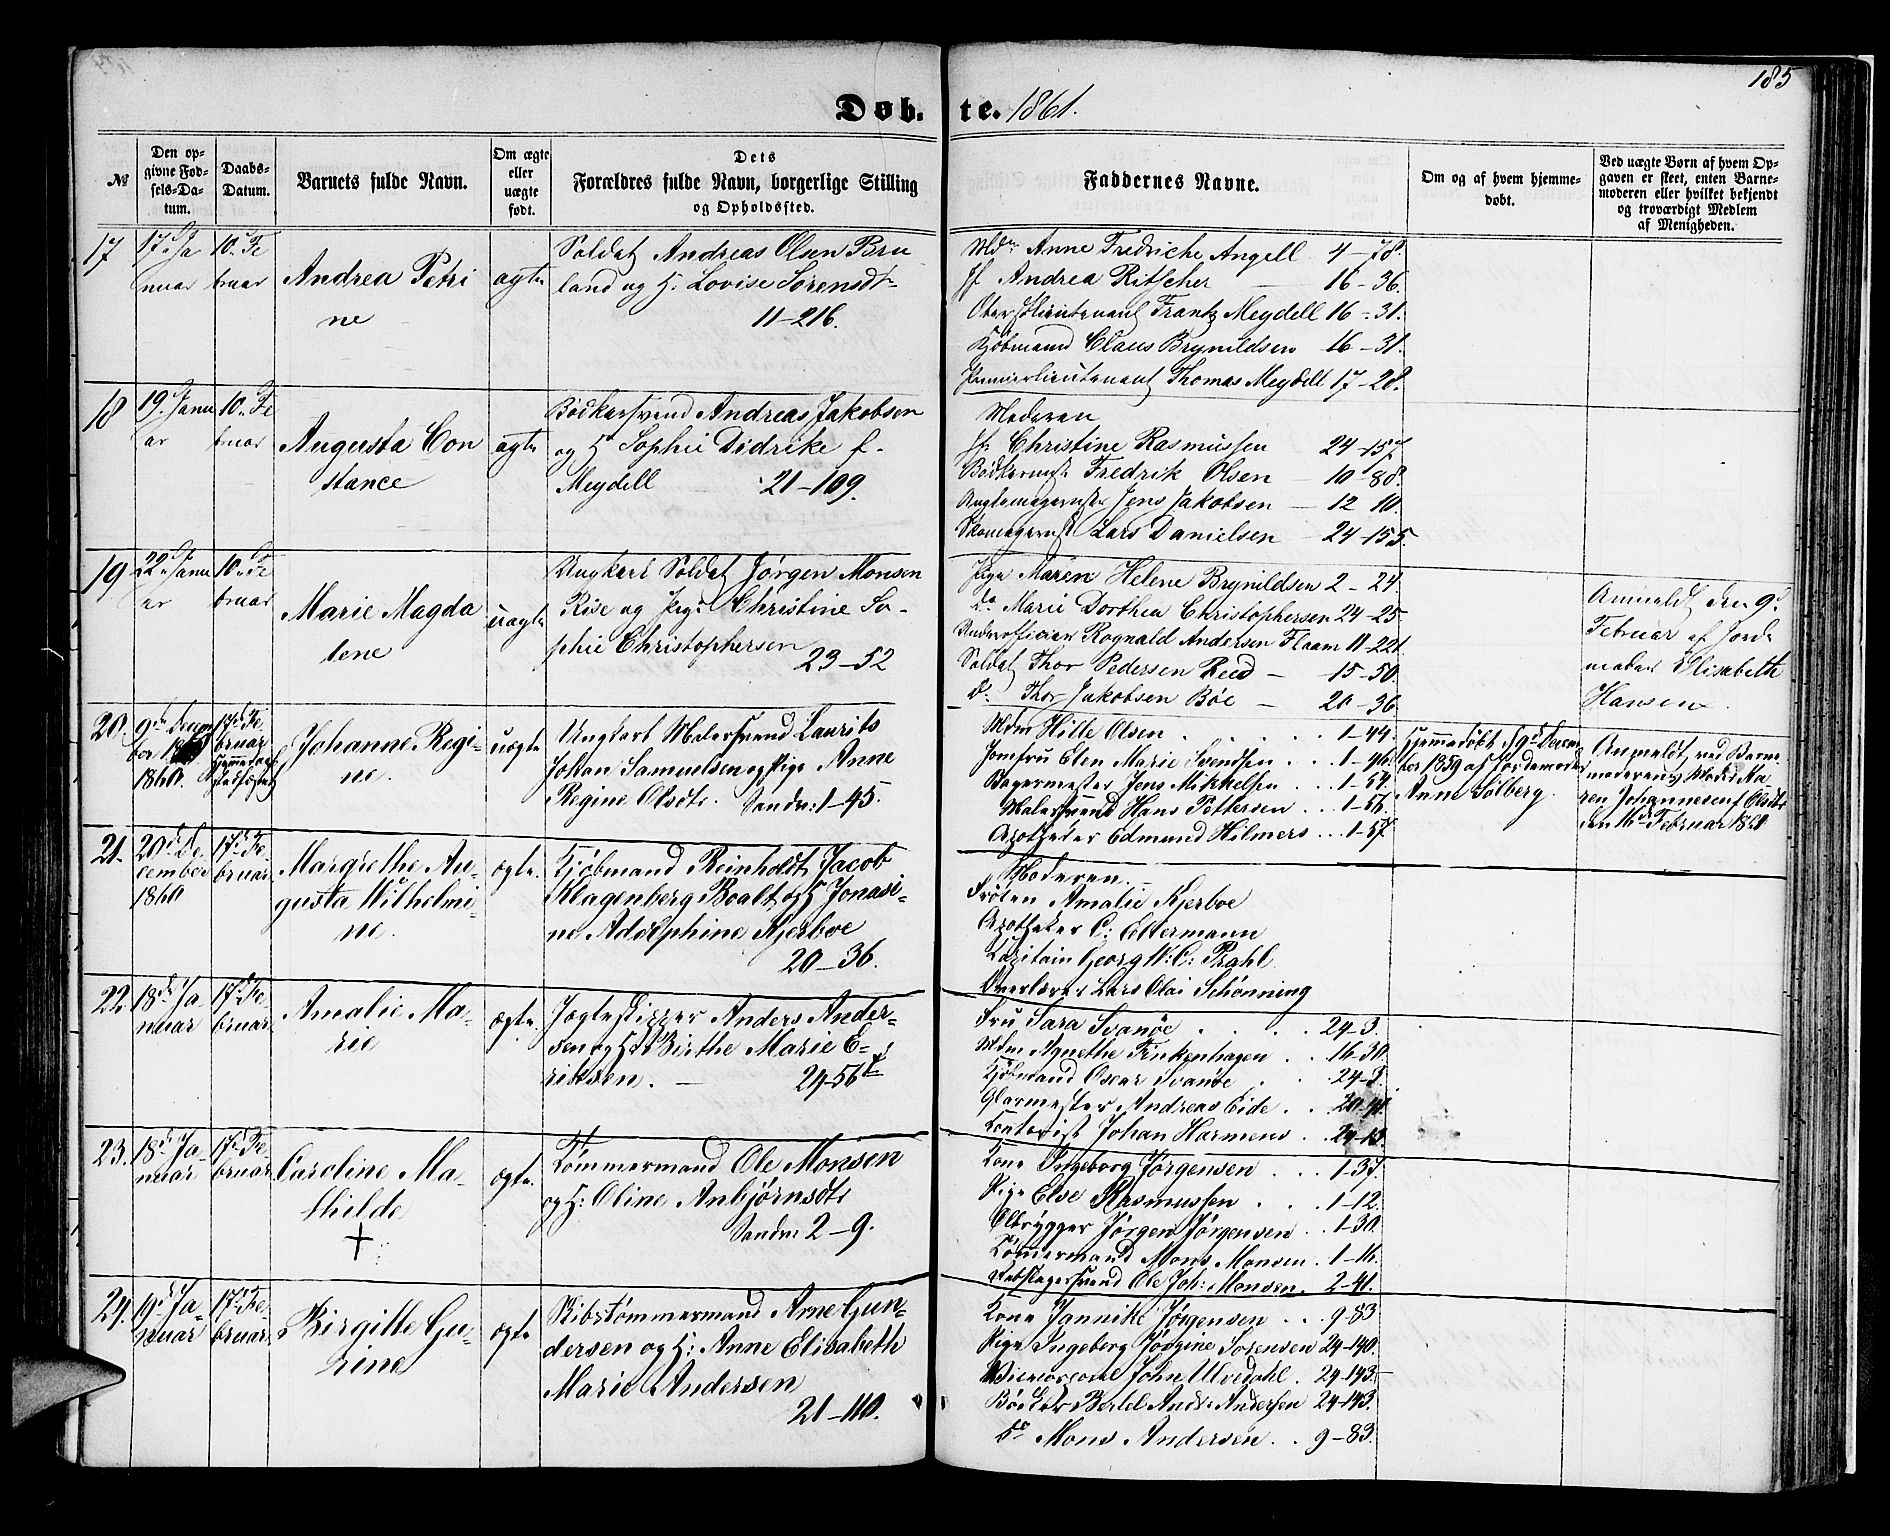 185
Døb- te. 1861.
No
Den op-
givne Fød-
sels-Da-
tum.
Daabs-
Datum.
Barnets fulde Navn.
Om ægte
eller
uægte
født.
Dets
Forældres fulde Navn, borgerlige Stilling
og Opholdssted.
Faddernes Navne.
Om og af hvem hjemme-
døbt.
Ved uægte Børn af hvem Op-
gaven er skeet, enten Barne-
moderen eller hvilket bekjendt
og troværdigt Medlem
af Menigheden.
17
17de Ja
nuar
10. Fe
bruar
Andrea Petri
ne
ægte
Soldat Andreas Olsen Bru
land og H. Lovise Sørensdtr
11-216.
Mdm Anne Fredriche Angell 4-78.
Jf Andrea Ritscher 16-36.
Oberstlieutenant Frantz Meydell 16-31.
Kjøbmand Claus Brynildsen 16-31.
Premierlieutenant Thomas Meydell 17-28.
18
19. Janu
ar
10. Fe
bruar
Augusta Con
stance
ægte
Bødkersvend Andreas Jakobsen
og H Sophie Didrike f.
Meydell 21-109.
Moderen
Jf Christine Rasmussen 24-157
Bødkermst Fredrik Olsen 10-88.
Jens Jakobsen 12 10.
Skomagermst Lars Danielsen 24-155
19
22. Janu
ar
10. Fe
bruar
Marie Magda
lene
uægte
Ungkarl Soldat Jørgen Monsen
Rise og Pige Christine So-
phie Christophersen
23-52
Pige Maren Helene Brynildsen 2-24.
do Marie Dorthea Christophersen 24-25
Underofficier Rognald Andersen Flaam 11-221
Soldat Thor Pedersen Reed 15-50.
do Thor Jakobsen Bøe 20-36
Anmeldt den 9de
Februar af Jorde
moder Elisabeth
Hansen.
20.
9de Decem
ber
1860.
17de Fe-
bruar
Johanne Regi-
ne.
uægte
Ungkarl Malersvend Laurits
Johan Samuelsen og Pige Anne
Regine Olsdtr. Sandv: 1-45.
Mdm Hille Olsen 1-44.
Jomfru Elen Marie Svendsen 1-46.
Bagermester Jens Mikkelsen 1-54.
Malersvend Hans Pettersen 1-56.
Apotheker Edmund Hilmers 1-57.
Hjemmedøbt d 9de Decem
ber 1859 af Jordemoder
Anne Solberg.
Anmeldt ved Barne
moderens Moder Ma
ren Johannesen f Olsdtr
den 16de Februar 1861
21.
20de De
cember
1860
17de Fe-
bruar.
Margrethe Au-
gusta Wilhelmi-
ne.
ægte.
Kjøbmand Reinholdt Jacob
Klagenberg Boalt og H Jonasi-
ne Adolphine Kjerboe
20-36.
Moderen.
Frøken Amalie Kjerboe
Apotheker C: Ellermann
Kapitain Georg W: C: Prahl
Overlærer Lars Olai Schønning
22
18de Ja-
nuar
17de Fe-
bruar.
Amalie Ma-
rie
ægte.
Jægteskipper Anders Ander-
sen og H: Birthe Marie E-
riksen. 24-56
Fru Sara Svanøe 24-3.
Mdm Agnethe Finkenhagen 16-30.
Kjøbmand Oscar Svanøe 24-3.
Glarmester Andreas Eide 20-41.
Kontorist Johan Harmens 24-13.
23.
18de Ja-
nuar
17de Fe-
bruar.
Caroline Ma-
thilde
ægte.
Tømmermand Ole Monsen
og H: Oline Anbjørnsdtr
Sandv: 2-9.
Kone Ingeborg Jørgensen 1-37.
Pige Else Rasmussen 1-12.
Ølbrygger Jørgen Jørgensen 1-30.
Tømmermand Mons Monsen 1-16.
Rebslagersvend Ole Joh: Monsen. 2-41.
24.
19de Ja-
nuar
17de Fe-
bruar.
Birgitte Gu-
rine
ægte
Skibstømmermand Arne Gun-
dersen og H: Anne Elisabeth
Marie Andersen
21-110.
Kone Jannike Jørgensen 9-83
Pige Ingeborg Jørgine Sørensen 24-140.
John Urdahl. 24-143.
Bødker Bertel Andr: Andersen 24-143.
do Mons Andersen. 9-83.